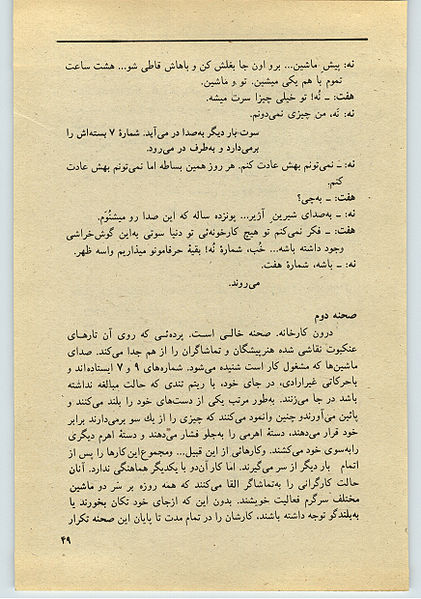 نه: پیش ماشین... برو اون جا بغلش کن و باهاش قاطی شو... هشت ساعت
تموم با هم یکی میشین. تو و ماشین.
هفت: ـ نُه! تو خیلی چیزا سرت میشه.
نه: نَه، من چیزی نمی‌دونم.
سوت بار دیگر به‌صدا در می‌آید. شمارهٔ ۷ بسته‌اش را
برمی‌دارد و به‌طرف در می‌رود.
نه: ـ نمی‌تونم بهش عادت کنم. هر روز همین بساطه اما نمی‌تونم بهش عادت
کنم.
هفت: ـ به‌چی؟
نه: ـ به‌صدای شیرین آژیر... پونزده ساله که این صدا رو میشنُوَم.
هفت: ـ فکر نمی‌کنم تو هیچ کارخونه‌ئی تو دنیا سوتی به‌این گوش‌خراشی
وجود داشته باشه... خُب، شمارهٔ نُه! بقیهٔ حرفامونو میذاریم واسه ظهر.
نه: ـ باشه، شمارهٔ هفت.
می‌روند.
صحنه دوم
درون کارخانه. صحنه خالی است. پرده‌ئی که روی آن تارهای
عنکبوت نقاشی شده هنرپیشگان و تماشاگران را از هم جدا می‌کند. صدای
ماشین‌ها که مشغول کار است شنیده می‌شود. شماره‌های ۹ و ۷ ایستاده‌اند و
باحرکاتی غیرارادی، در جای خود، با ریتم تندی که حالت مبالغه نداشته
باشد در جا می‌زنند. به‌طور مرتب یکی از دست‌های خود را بلند می‌کنند و
پائین می‌آورندو چنین وانمود می‌کنند که چیزی را از یك سو برمی‌دارند برابر
خود قرار می‌دهند، دستهٔ اهرمی را به‌جلو فشار می‌دهند و دستهٔ اهرم دیگری
رابه‌سوی خود می‌کشند. وکارهائی از این قبیل... ومجموع این‌کارها را پس از
اتمام بار دیگر از سر می‌گیرند. اما کار آن‌دو با یکدیگر هماهنگی ندارد. آنان
حالت کارگرانی را به‌تماشاگر القا می‌کنند که همه روزه بر سَر دو ماشین
مختلف سرگرم فعالیت خویشند. بدون این که ازجای خود تکان بخورند یا
به‌بلندگو توجه داشته باشند، کارشان را در تمام مدت تا پایان این صحنه تکرار
۴۹